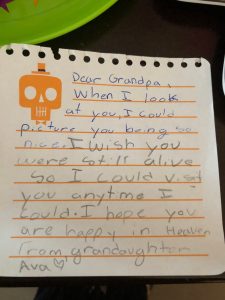 Dear Grandpa,
When I look
at you, I could
picture you being so
nice. I wish you
were still alive
So I could visit
you anytime I
could. I hope you
are happy in Heaven
From, grandaughter
Ava